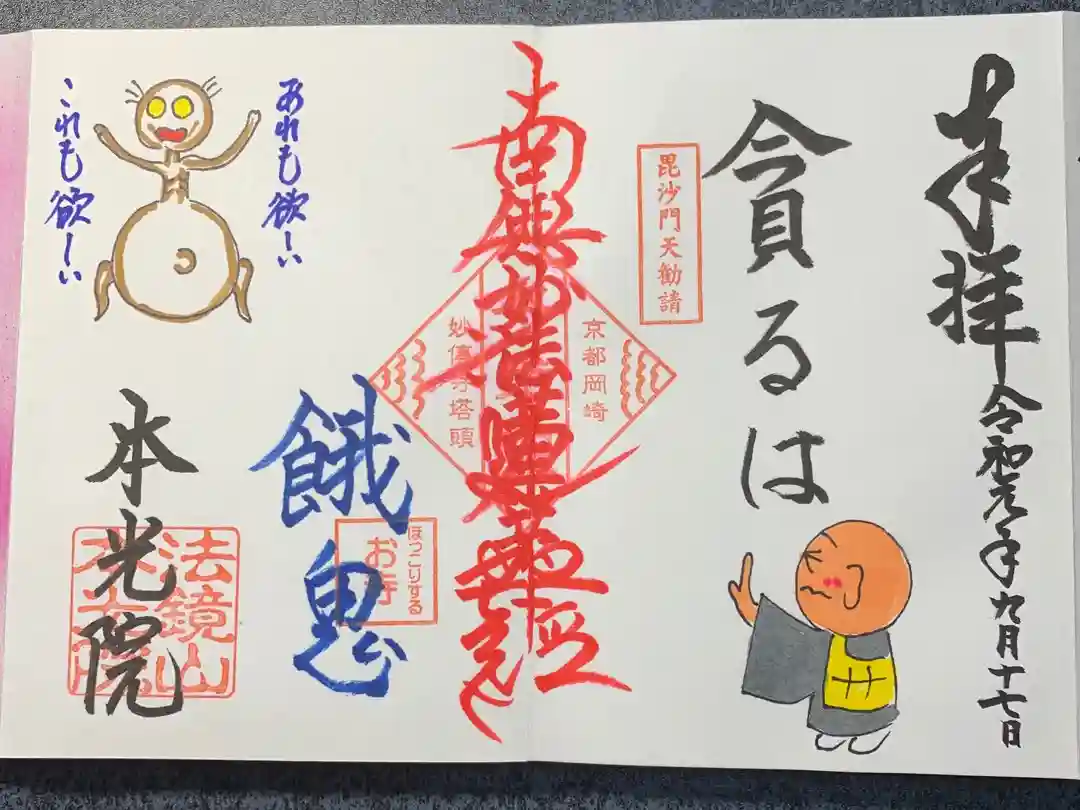 奉拝
令和元年九月十七日
貪るは
毘沙門天勧請
京都岡崎
南無妙法蓮華経
妙傳寺塔頭
ほっこりする
お寺
餓鬼
あれも欲しい
これも欲しい
本光院
法鏡山
本光院